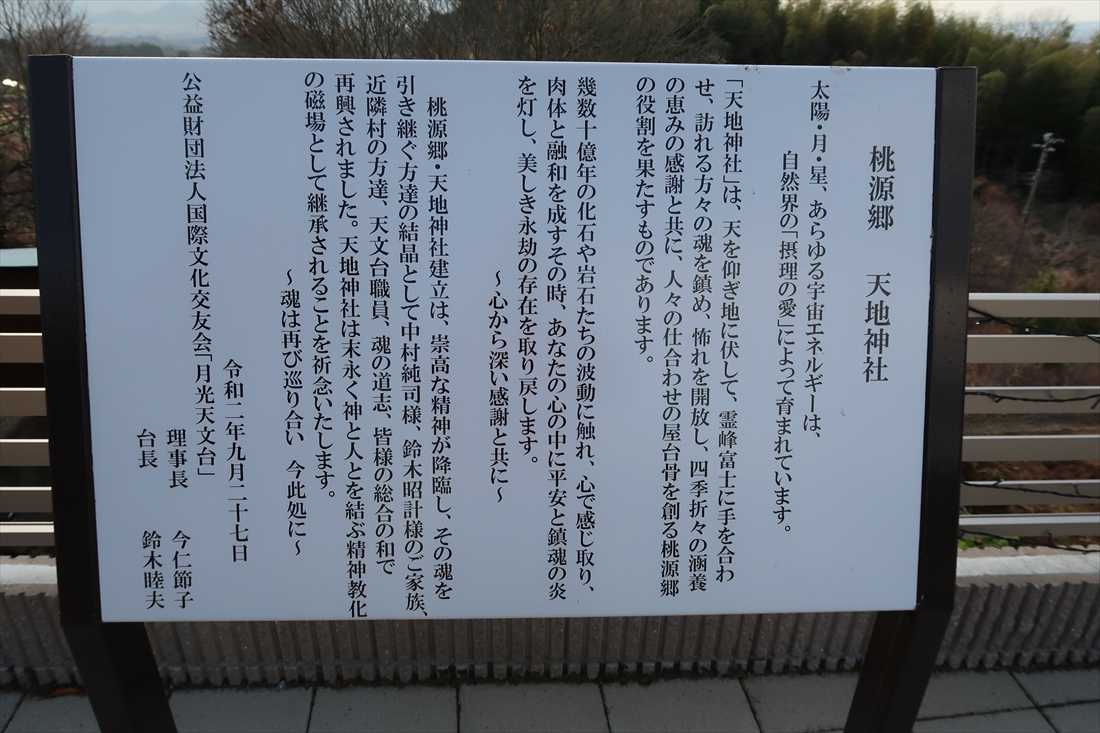 桃源郷　天地神社
太陽・月・星、あらゆる宇宙エネルギーは、
自然界の「摂理の愛」によって育まれています。
「天地神社」は、天を仰ぎ地に伏して、霊峰富士に手を合わ
せ、訪れる方々の魂を鎮め、怖れを開放し、四季折々の涵養
の恵みの感謝と共に、人々の仕合わせの屋台骨を創る桃源郷
の役割を果たすものであります。
幾数十億年の化石や岩石たちの波動に触れ、心で感じ取り、
肉体と融和を成すその時、あなたの心の中に平安と鎮魂の炎
を灯し、美しき永劫の存在を取り戻します。
～心から深い感謝と共に～
桃源郷・天地神社建立は、崇高な精神が降臨し、その魂を
引き継ぐ方達の結晶として中村純司様、鈴木昭計様のご家族、
近隣村の方達、天文台職員、魂の道志、皆様の総合の和で
再興されました。天地神社は末永く神と人とを結ぶ精神教化
の磁場として継承されることを祈念いたします。
～魂は再び巡り合い　今此処に～
令和二年九月二十七日
公益財団法人国際文化交友会「月光天文台」
理事長　今仁節子
台長　鈴木睦夫